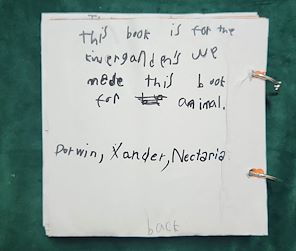 This book is for the
kinergandens we
made this book
for animal.
Dorwin, Xander, Nectaria
back